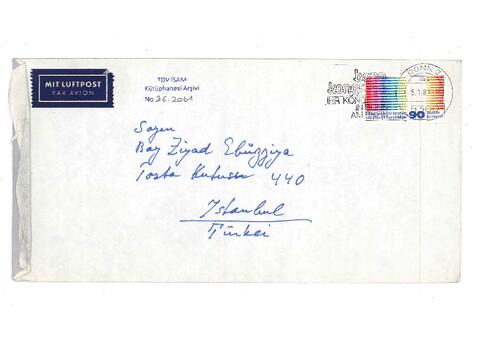 MIT LUFTPOST
PAR AVION
TDV İSAM
Kütüphanesi Arşivi
No 2E.2061
IHR KON
IN
AM
BONN
5.1.8
90
Sayın
Bay Ziyad Ebüzziya
Posta Kutusu 440
Istanbul
Türkei